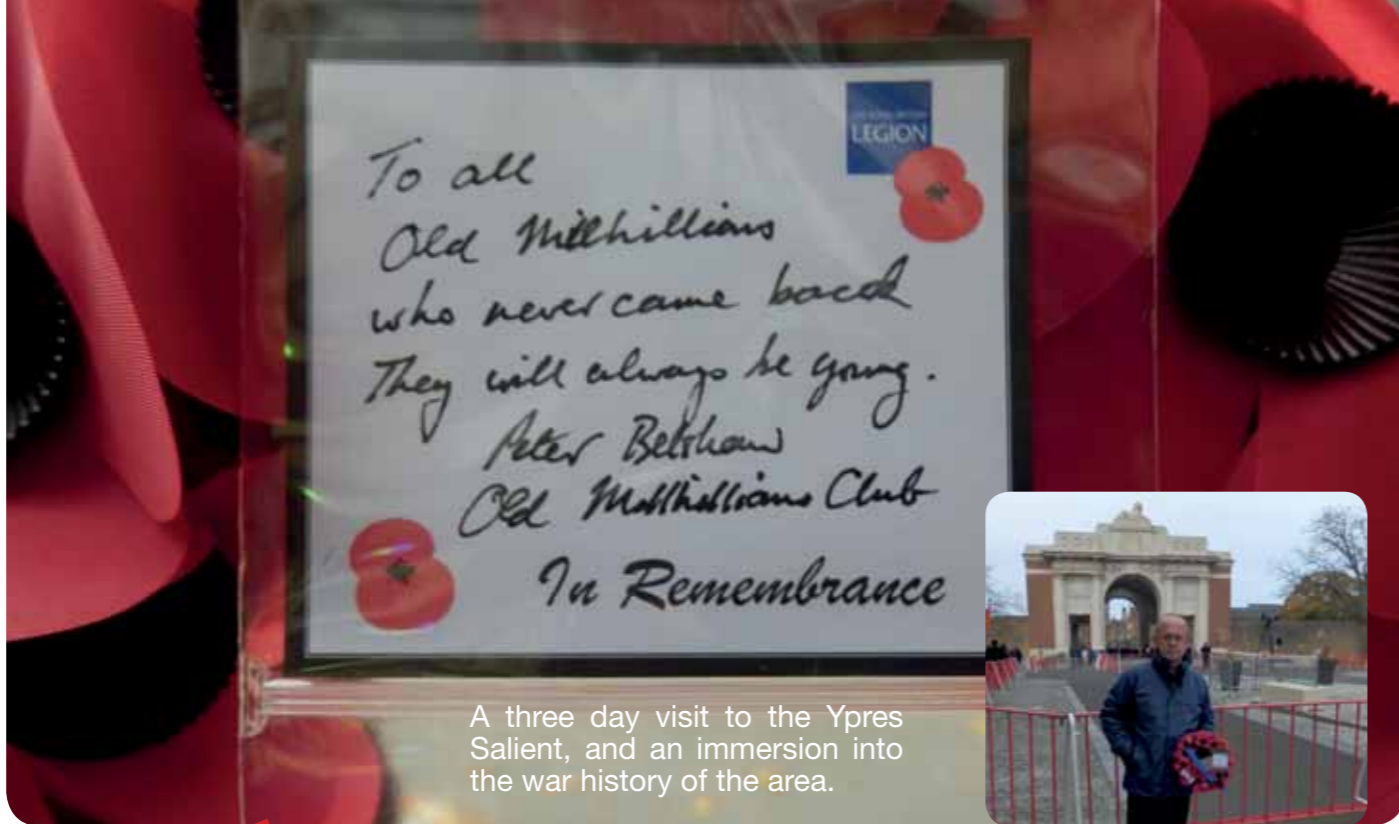 LEGION
To all
Old Millhillians
who never came back
They will always be young.
Peter Belsham
Old Millhillians Club
In Remembrance
A three day visit to the Ypres
Salient, and an immersion into
the war history of the area.